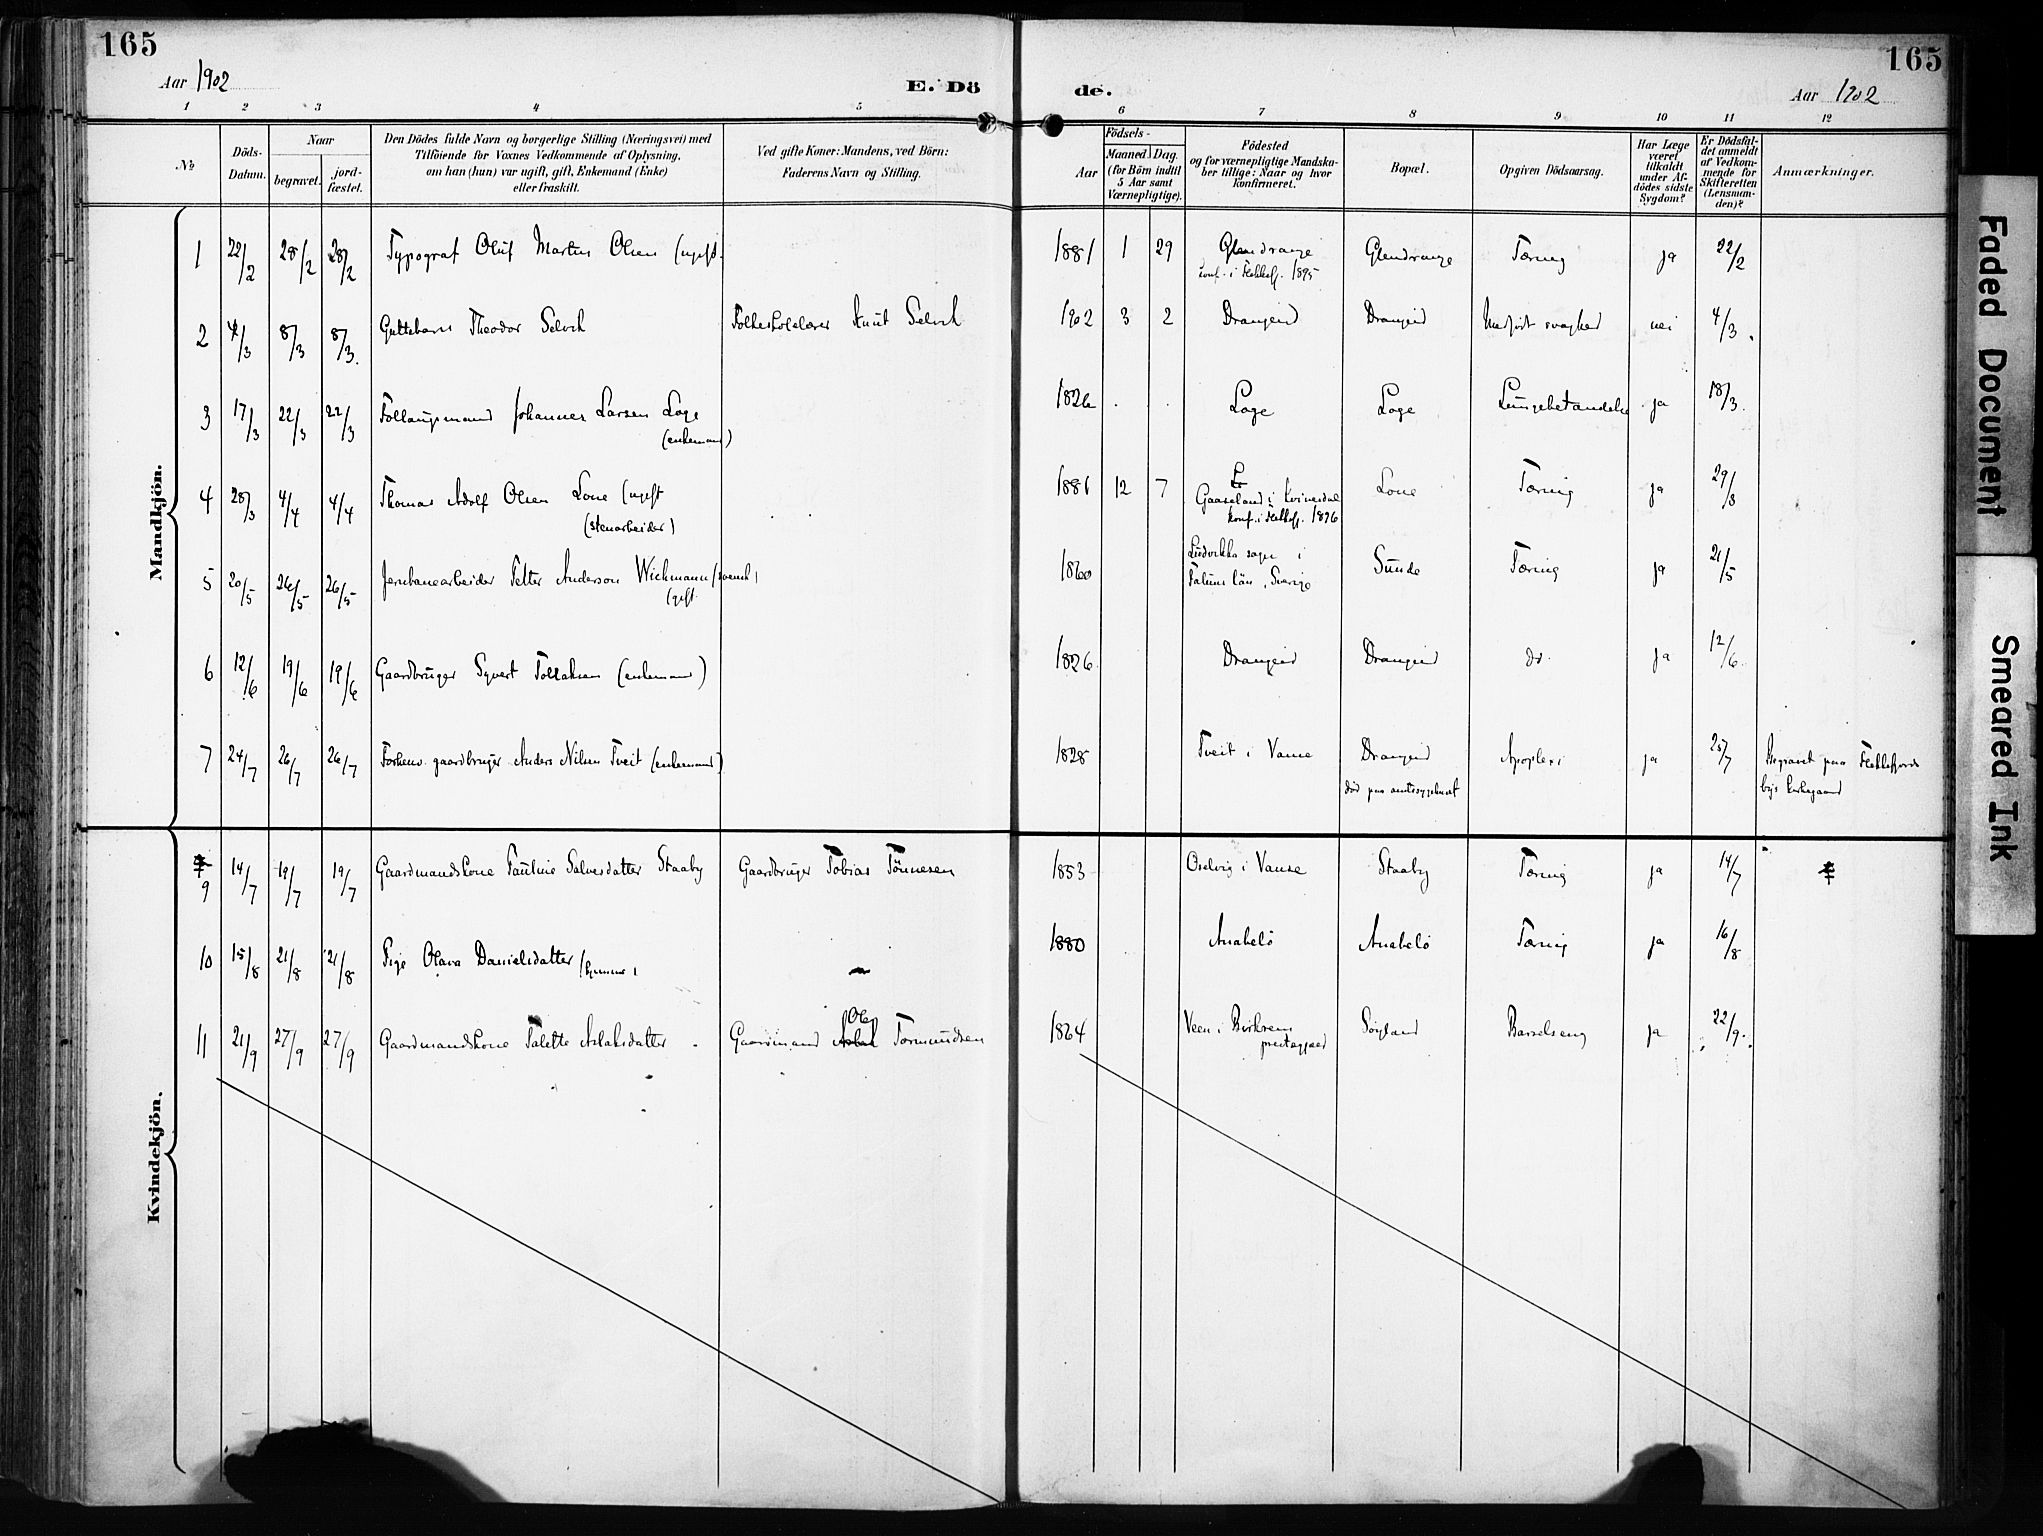 165
Aar 1902
E. Dö
1 2 3 4 5
No
Döds-Datum.
Naar
begravet.
jord-fæstet.
Den Dödes fulde Navn og borgerlige Stilling (Næringsvei) med
Tilföiende for Voxnes Vedkommende af Oplysning,
om han (hun) var ugift, gift, Enkemand (Enke)
eller fraskilt.
Ved gifte Koner: Mandens, ved Börn:
Faderens Navn og Stilling.
165
Aar 1902
de.
6 7 8 9 10 11 12
Födsels-
Aar
Maaned. Dag.
(for Börn indtil
5 Aar samt
Værnepligtige).
Födested
og for værnepligtige Mandska-
ber tillige: Naar og hvor
konfirmeret.
Bopæl.
Opgiven Dödsaarsag.
Har Læge
været
tilkaldt
under Af-
dödes sidste
Sygdom?
Er Dödsfal-
det anmeldt
af Vedkom-
mende for
Skifteretten
(Lensman-
den)?
Anmærkninger.
Mandkjön.
1 22/2 28/2 28/2 Typograf Oluf Martin Olsen (ugift. 1881 1 29 Glendrange Glendrange Tæring ja 22/2
konf. i Flekkefj. 1895
2 4/3 8/3 8/3. Guttebarn Theodor Selvik Folkeskolelærer Knut Selvik 1902 3 2 Drangeid Drangeid Medfødt svaghed nei 4/3.
3 17/3 22/3 22/3 Johannes Larsen Loge 1826 Loge Loge Lungebetændelse ja 18/3.
(enkemand)
4 28/3 4/4 4/4 Thomas Adolf Olsen Lone (ugift 1881 12 7 Gaaseland i Kvinesdal Lone Tæring ja 29/3
(stenarbeider) konf. i Flekkefj. 1896
5 20/5 26/5 26/5 Jernbanearbeider Petter Anderson Wichmann (svensk) 1860 Ludvikka sogn i Sunde Tæring ja 21/5
(gift. Faluns län, Sverige
6 12/6 19/6 19/6 Gaardbruger Syvert Tollaksen (enkemand) 1826 Drangeid Drangeid do. ja 12/6.
7 24/7 26/7 26/7 Forhenv. gaardbruger Anders Nilsen Tveit (enkemand) 1828 Tveit i Vanse Drangeid Apoplexi ja 25/7 Begravet paa Flekkefjords
død paa amtssygehuset bys kirkegaard
Kvindekjön.
9 14/7 19/7 19/7 Gaardmandskone Pauline Salvesdatter Staaby Gaardbruger Tobias Tønnesen 1853 Oselvig i Vanse Staaby Tæring ja 14/7
10 15/8 21/8 21/8 Pige Olava Danielsdatter 1880 Anabelø Anabelø Tæring ja 16/8
11 21/9 27/9 27/9 Gaardmandskone Talette Aslaksdatter Gaardmand Aslak (Ole) Tormundsen 1864 Veen i Birkrem Søyland Barselseng ja 22/9.
prestegjæld
Faded Document
Smeared Ink